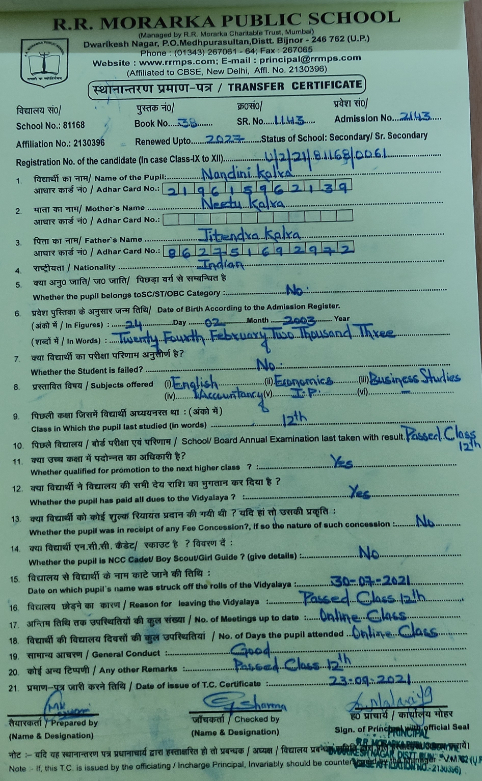 R.R. MORARKA PUBLIC SCHOOL
(Managed by R.R. Morarka Charitable Trust, Mumbai)
Dwarikesh Nagar, P.O.Medhpurasultan,Distt. Bijnor - 246 762 (U.P.)
Phone : (01343) 267061 - 64; Fax : 267065
Website : www.rrmps.com; E-mail : principal@rrmps.com
(Affiliated to CBSE, New Delhi, Affl. No. 2130396)
स्थानान्तरण प्रमाण-पत्र / TRANSFER CERTIFICATE
विद्यालय सं0/ पुस्तक नं0/ क्र0सं0/ प्रवेश सं0/
School No.: 81168 Book No. 38 SR. No. 1143 Admission No. 2143
Affiliation No.: 2130396 Renewed Upto 2027 Status of School: Secondary/ Sr. Secondary
Registration No. of the candidate (In case Class-IX to XII) U/2/21/81168/0061
1. विद्यार्थी का नाम/ Name of the Pupil: Nandini Kalra
आधार कार्ड नं0 / Adhar Card No.: 219615962139
2. माता का नाम/ Mother's Name Neetu Kalra
आधार कार्ड नं0 / Adhar Card No.:
3. पिता का नाम/ Father's Name Jitendra Kalra
आधार कार्ड नं0 / Adhar Card No.: 862751692972
4. राष्ट्रीयता / Nationality Indian
5. क्या अनु0 जाति/ ज0 जाति/ पिछड़ा वर्ग से सम्बन्धित है
Whether the pupil belongs toSC/ST/OBC Category : No
6. प्रवेश पुस्तिका के अनुसार जन्म तिथि/ Date of Birth According to the Admission Register.
(अंको में / In Figures) : 24 Day 02 Month 2003 Year
(शब्दों में / In Words) : Twenty Fourth February Two Thousand Three
7. क्या विद्यार्थी का परीक्षा परिणाम अनुत्तीर्ण है?
Whether the Student is failed? No
8. प्रस्तावित विषय / Subjects offered (i) English (ii) Economics (iii) Business Studies
(iv) Accountancy (v) I.P (vi) —
9. पिछली कक्षा जिसमें विद्यार्थी अध्ययनरत था : (अंको में)
Class in Which the pupil last studied (in words) 12th
10. पिछले विद्यालय / बोर्ड परीक्षा एवं परिणाम / School/ Board Annual Examination last taken with result Passed Class 12th
11. क्या उच्च कक्षा में पदोन्नत का अधिकारी है?
Whether qualified for promotion to the next higher class ? : Yes
12. क्या विद्यार्थी ने विद्यालय की सभी देय राशि का भुगतान कर दिया है ?
Whether the pupil has paid all dues to the Vidyalaya ? : Yes
13. क्या विद्यार्थी को कोई शुल्क रियायत प्रदान की गयी थी ? यदि हां तो उसकी प्रकृति :
Whether the pupil was in receipt of any Fee Concession?, If so the nature of such concession : No
14. क्या विद्यार्थी एन.सी.सी. कैडेट/ स्काउट है ? विवरण दें :
Whether the pupil is NCC Cadet/ Boy Scout/Girl Guide ? (give details) : No
15. विद्यालय से विद्यार्थी के नाम काटे जाने की तिथि :
Date on which pupil's name was struck off the rolls of the Vidyalaya : 30-07-2021
16. विद्यालय छोड़ने का कारण / Reason for leaving the Vidyalaya Passed Class 12th
17. अन्तिम तिथि तक उपस्थितियों की कुल संख्या / No. of Meetings up to date : Online Class
18. विद्यार्थी की विद्यालय दिवसों की कुल उपस्थितियां / No. of Days the pupil attended Online Class
19. सामान्य आचरण / General Conduct : Good
20. कोई अन्य टिप्पणी / Any other Remarks : Passed Class 12th
21. प्रमाण-पत्र जारी करने तिथि / Date of Issue of T.C. Certificate 23-09-2021
तैयारकर्ता / Prepared by जाँचकर्ता / Checked by ह0 प्राचार्य / कार्यालय मोहर
(Name & Designation) (Name & Designation) Sign. of Principal with official Seal
PRINCIPAL
नोट :- यदि यह स्थानान्तरण पत्र प्रधानाचार्य द्वारा हस्ताक्षरित हो तो प्रबन्धक / अध्यक्ष / विद्यालय
Note :- If, this T.C. is issued by the officiating / Incharge Principal, Invariably should be